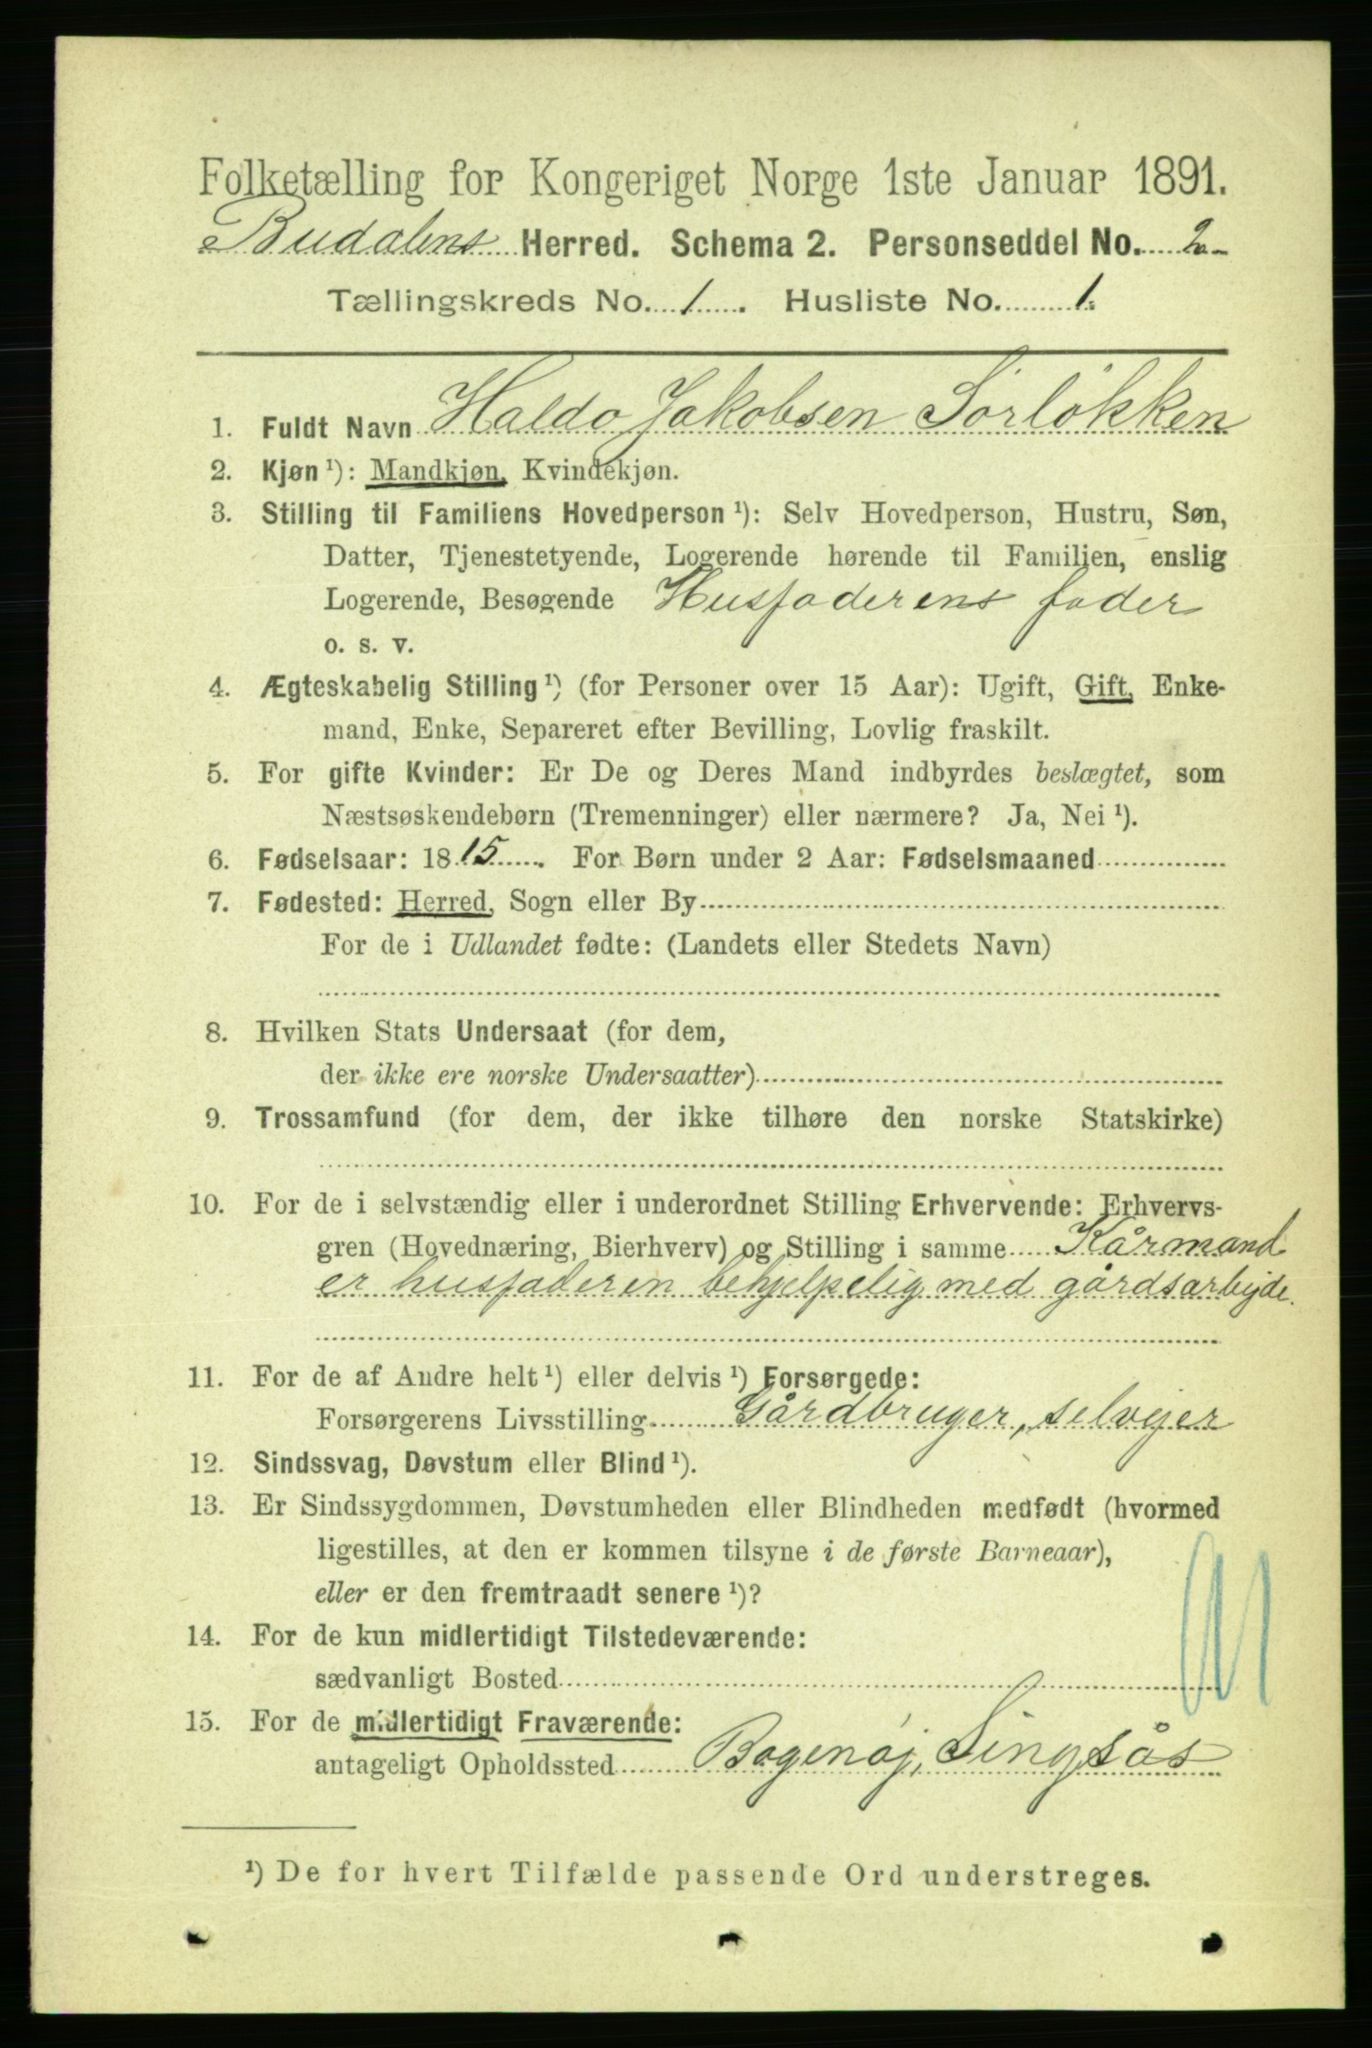 Folketælling for Kongeriget Norge 1ste Januar 1891.
Budalens Herred. Schema 2. Personseddel No. 2
Tællingskreds No. 1. Husliste No. 1.
1. Fuldt Navn Haldo Jakobsen Sörlökken
2. Kjøn ¹): Mandkjøn, Kvindekjøn.
3. Stilling til Familiens Hovedperson ¹): Selv Hovedperson, Hustru, Søn,
Datter, Tjenestetyende, Logerende hørende til Familien, enslig
Logerende, Besøgende Husfaderens fader
o. s. v.
4. Ægteskabelig Stilling ¹) (for Personer over 15 Aar): Ugift, Gift, Enke-
mand, Enke, Separeret efter Bevilling, Lovlig fraskilt.
5. For gifte Kvinder: Er De og Deres Mand indbyrdes beslægtet, som
Næstsøskendebørn (Tremenninger) eller nærmere? Ja, Nei ¹).
6. Fødselsaar: 1815. For Børn under 2 Aar: Fødselsmaaned
7. Fødested: Herred, Sogn eller By
For de i Udlandet fødte: (Landets eller Stedets Navn)
8. Hvilken Stats Undersaat (for dem,
der ikke ere norske Undersaatter)
9. Trossamfund (for dem, der ikke tilhøre den norske Statskirke)
10. For de i selvstændig eller i underordnet Stilling Erhvervende: Erhvervs-
gren (Hovednæring, Bierhverv) og Stilling i samme Kårmand
er husfaderen behjelpelig med gårdsarbejde.
11. For de af Andre helt ¹) eller delvis ¹) Forsørgede:
Forsørgerens Livsstilling Gårdbruger, selvejer
12. Sindssvag, Døvstum eller Blind ¹).
13. Er Sindssygdommen, Døvstumheden eller Blindheden medfødt (hvormed
ligestilles, at den er kommen tilsyne i de første Barneaar),
eller er den fremtraadt senere ¹)?
14. For de kun midlertidigt Tilstedeværende:
sædvanligt Bosted
15. For de midlertidigt Fraværende:
antageligt Opholdssted Bogenöj, Singsås
¹) De for hvert Tilfælde passende Ord understreges.